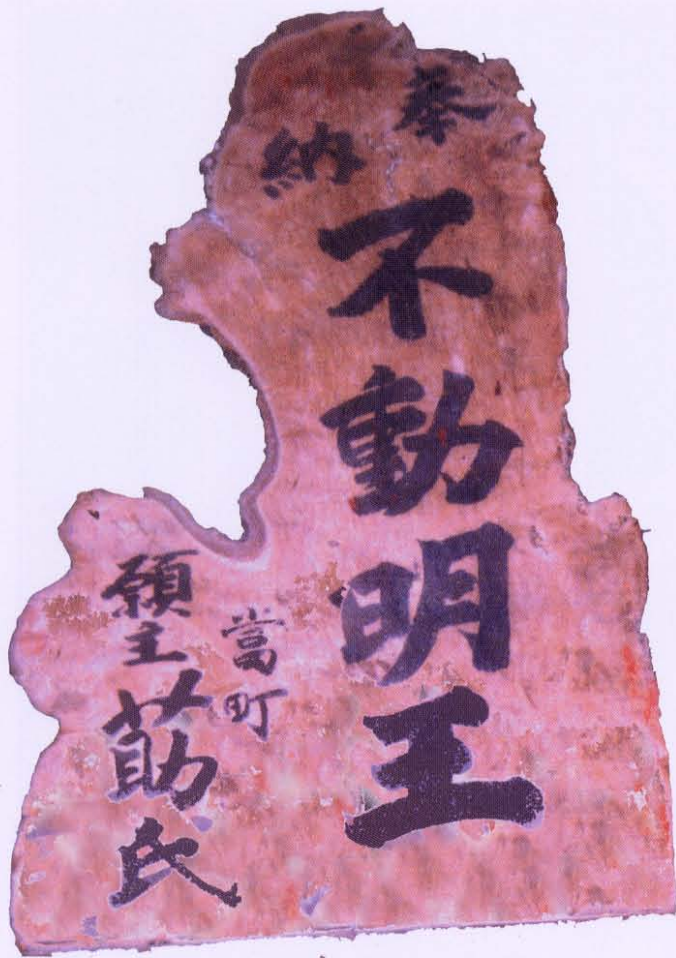 奉納
不動明王
當町
願主 莇氏